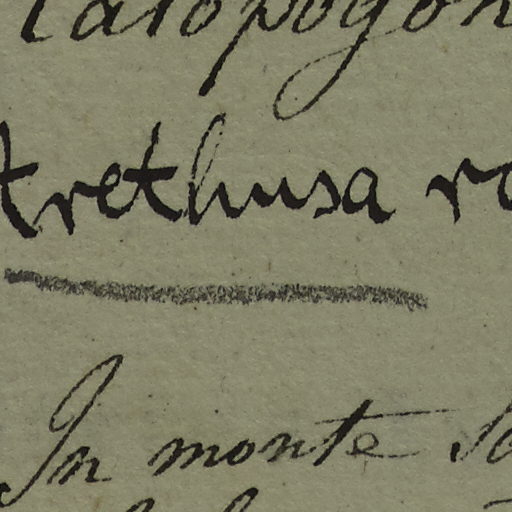 Calopogon
Arethusa ro
In monte So